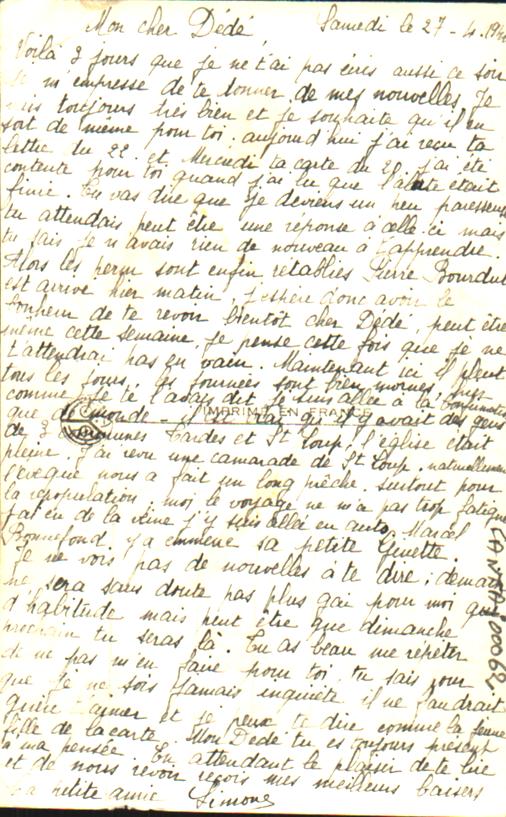 Mon cher Dédé Samedi le 27-4.19
Voilà 3 jours que je ne t'ai pas écris aussi ce soir
je m'empresse de te donner de mes nouvelles. Je
suis toujours très bien et je souhaite qu'il en
soit de même pour toi. aujourd'hui j'ai reçu ta
lettre du 22 et Mercredi ta carte du 21 j'ai été
contente pour toi quand j'ai lu que l'alerte était
finie. Tu vas dire que je deviens un peu paresseuse
tu attendais peut être une réponse à celle-ci mais
tu sais je n'avais rien de nouveau à t'apprendre.
Alors les perm sont enfin rétablies Pierre Bourdut
est arrivé hier matin, j'espère donc avoir le
bonheur de te revoir bientôt cher Dédé, peut être
même cette semaine, je pense cette fois que je ne
t'attendrai pas en vain. Maintenant ici il pleut
tous les jours, les journées sont bien mornes,
comme je te l'avais dit je suis allée à la
que de monde - il est vrai qu'il y avait des gens
IMPRIMÉ EN FRANCE
de 3 communes Tardes et St Loup, l'église était
pleine. J'ai revu une camarade de St Loup. naturellement
l'évêque nous a fait un long prêche. surtout pour
la repopulation. moi le voyage ne m'a pas trop fatigué
j'ai eu de la veine j'y suis allée en auto, Marcel
Bonnefond y a emmené sa petite Ginette.
Je ne vois pas de nouvelles à te dire; demain
ne sera sans doute pas plus gai pour moi que
d'habitude mais peut être que dimanche
prochain tu seras là. Tu as beau me répéter
de ne pas m'en faire pour toi, tu sais pour
que je ne sois jamais inquiète il ne faudrait
guère t'aimer et je peux te dire comme la jeune
fille de la carte. Mon Dédé tu es toujours présent
à ma pensée. En attendant le plaisir de te lire
et de nous revoir reçois mes meilleurs baisers
Ta petite amie Simone